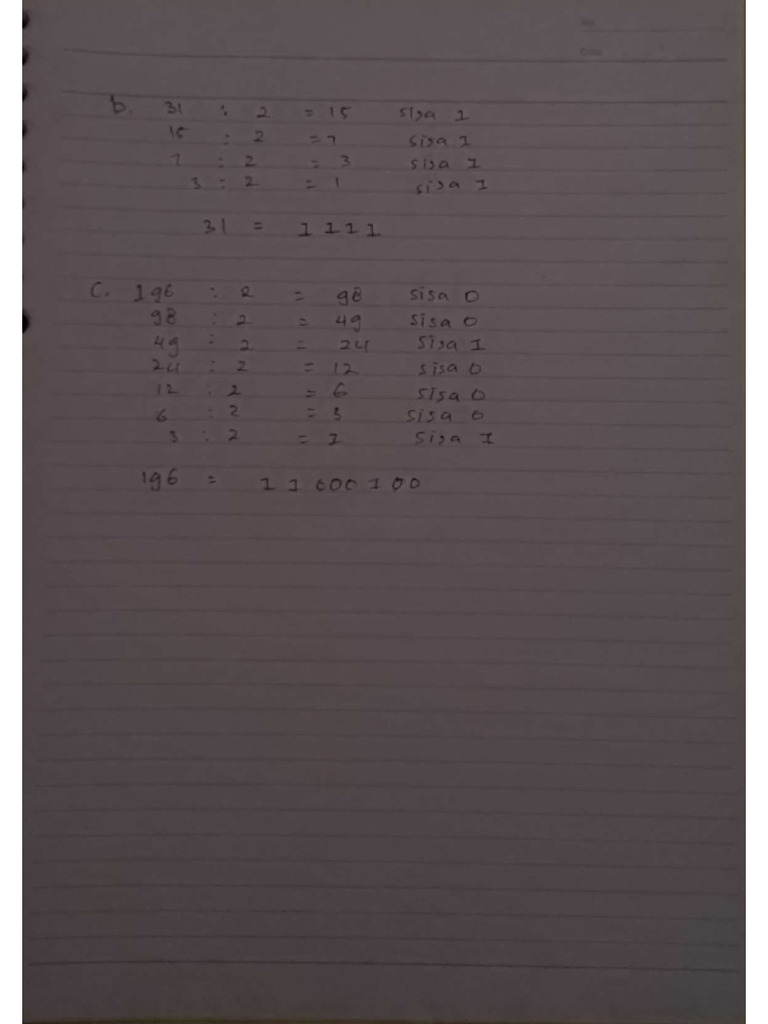 No
Date
b. 31 : 2 = 15 sisa 1
15 : 2 = 7 sisa 1
7 : 2 = 3 sisa 1
3 : 2 = 1 sisa 1
31 = 1111
C. 196 : 2 = 98 sisa 0
98 : 2 = 49 sisa 0
49 : 2 = 24 sisa 1
24 : 2 = 12 sisa 0
12 : 2 = 6 sisa 0
6 : 2 = 3 sisa 0
3 : 2 = 1 sisa 1
196 = 11000100